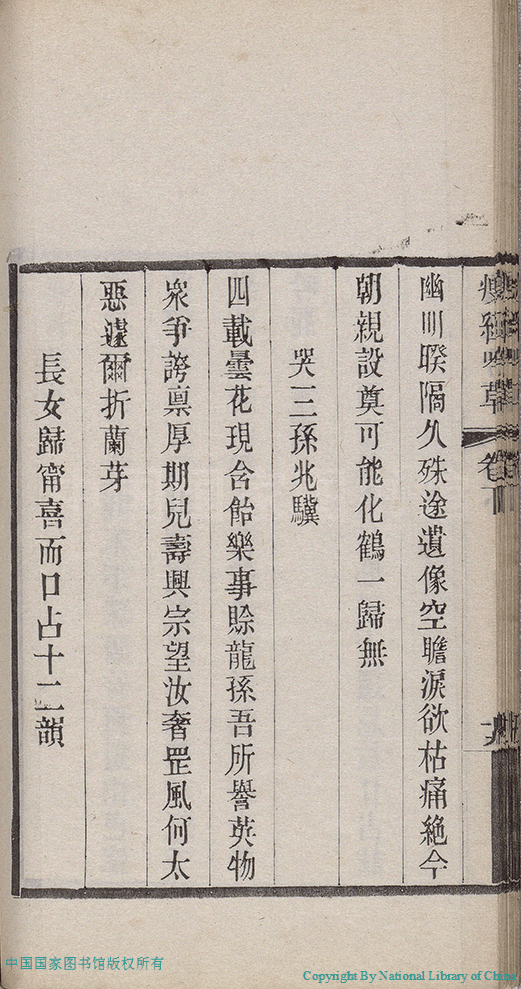 幽明睽隔久殊途遺像空瞻淚欲枯痛絶今
朝親設奠可能化鶴一歸無
哭三孫兆驥
四載曇花現含飴樂事賒龍孫吾所譽英物
衆爭誇禀厚期兒壽興宗望汝奢罡風何太
惡遽爾折蘭芽
長女歸甯喜而口占十二韻
中国国家图书馆版权所有
Copyright By National Library of China